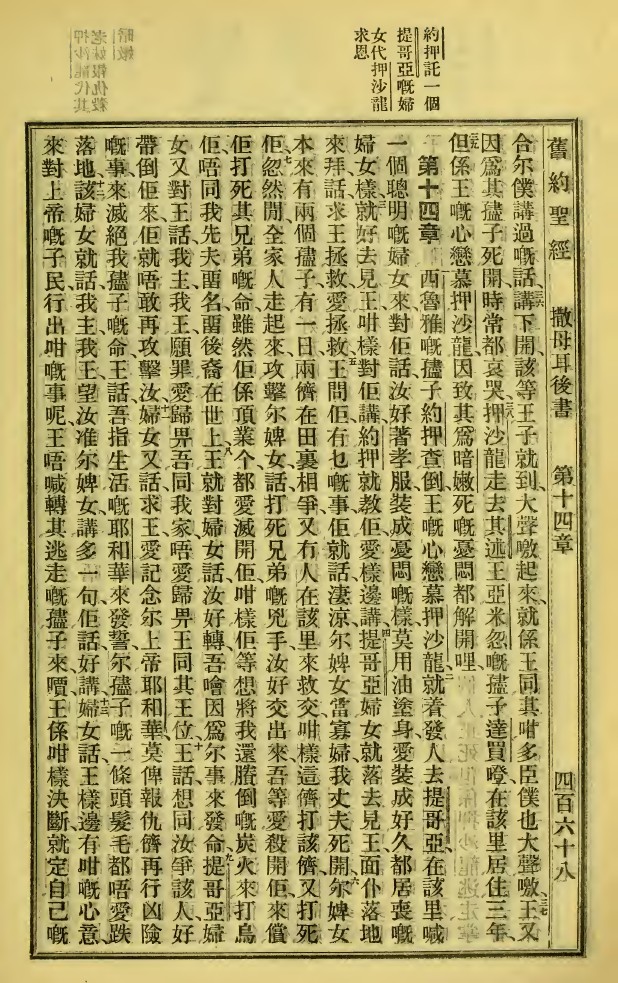 約押託一個
提哥亞嘅婦
女代押沙龍
求恩
舊約聖經 撒母耳後書 第十四章 四百六十八
合尔僕講過嘅話、講下開該等王子就到、大聲噭起來、就係王同其咁多臣僕也大聲噭、王又
因爲其𡥧子死開時常都哀哭、押沙龍走去其述王亞米忽嘅𡥧子達買嗱在該里居住三年、
但係王嘅心戀慕押沙龍、因致其爲暗嫩死嘅憂悶都解開哩
第十四章 西魯雅嘅𡥧子約押查倒王嘅心戀慕押沙龍、就着發人去提哥亞在該里喊
一個聰明嘅婦女來、對佢話、汝好著孝服、裝成憂悶嘅樣、莫用油塗身、愛裝成好久都居喪嘅
婦女樣、就好去見王、咁樣對佢講、約押就教佢愛樣邊講、提哥亞婦女就落去見王、面仆落地
來拜話、求王拯救、愛拯救、王問佢冇乜嘅事、佢就話、淒涼尔婢女當寡婦、我丈夫死開、尔婢女
本來有兩個𡥧子、有一日兩儕在田裏相爭、又冇人在該里來救交、咁樣這儕打該儕、又打死
佢、忽然閒全家人走起來攻擊尔婢女、話、打死兄弟嘅兇手、汝好交出來、吾等愛殺開佢來償
佢打死其兄弟嘅命、雖然佢係頂業个都愛滅開佢、咁樣佢等想將我還賸倒嘅炭火來打烏、
佢唔同我先夫畱名畱後裔在世上、王就對婦女話、汝好轉吾噲因爲尔事來發命、提哥亞婦
女又對王話、我主我王、願罪愛歸畀吾同我家、唔愛歸畀王同其王位、王話、想同汝爭該人好
帶倒佢來、佢就唔敢再攻擊汝、婦女又話、求王愛記念尔上帝耶和華、莫俾報仇儕再行凶險
嘅事、來滅絕我𡥧子嘅命、王話、吾指生活嘅耶和華來發誓、尔𡥧子嘅一條頭髮毛都唔愛跌
落地、該婦女就話、我主我王、望汝准尔婢女講多一句、佢話、好講、婦女話、王樣邊有咁嘅心意
來對上帝嘅子民行出咁嘅事呢、王唔喊轉其逃走嘅𡥧子來、嘖王係咁樣決斷、就定自己嘅